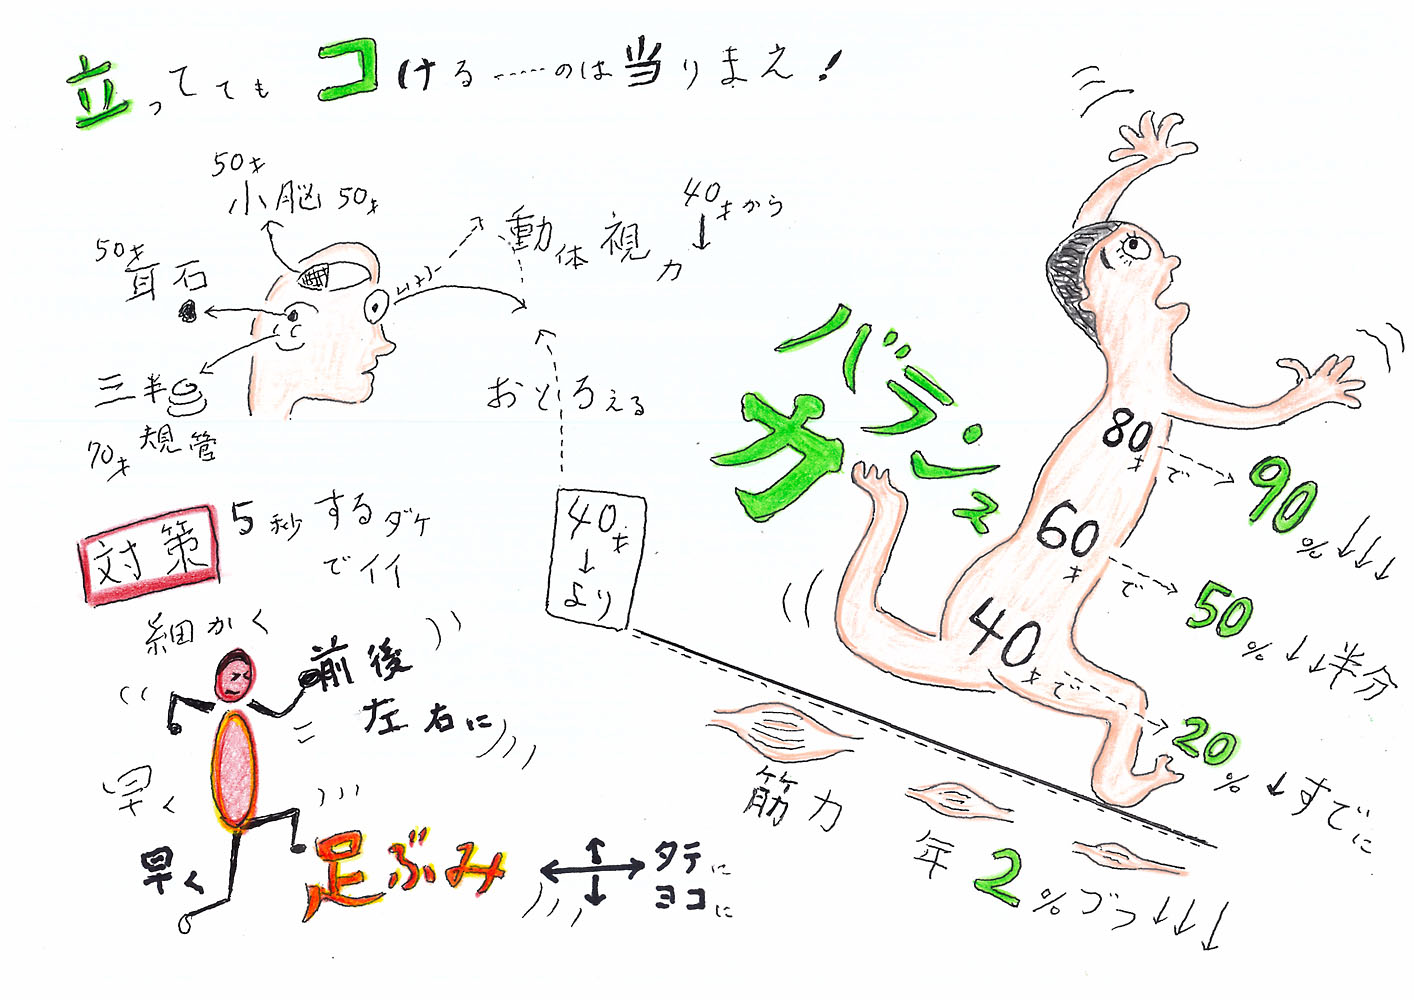 立ってても コける……のは当りまえ！
50才
小脳 50才
50才
耳石
三半
規管
70才
動体視力
40才から
↓
おとろえる
バランス
力
80才で → 90%↓↓↓
60才で → 50%↓↓半分
40才で → 20%↓すでに
40才
↓
より
筋力
年2%づつ↓↓↓
対策
5秒するダケ
でイイ
細かく
前後
左右に
早く
早く
足ぶみ
タテに
ヨコに